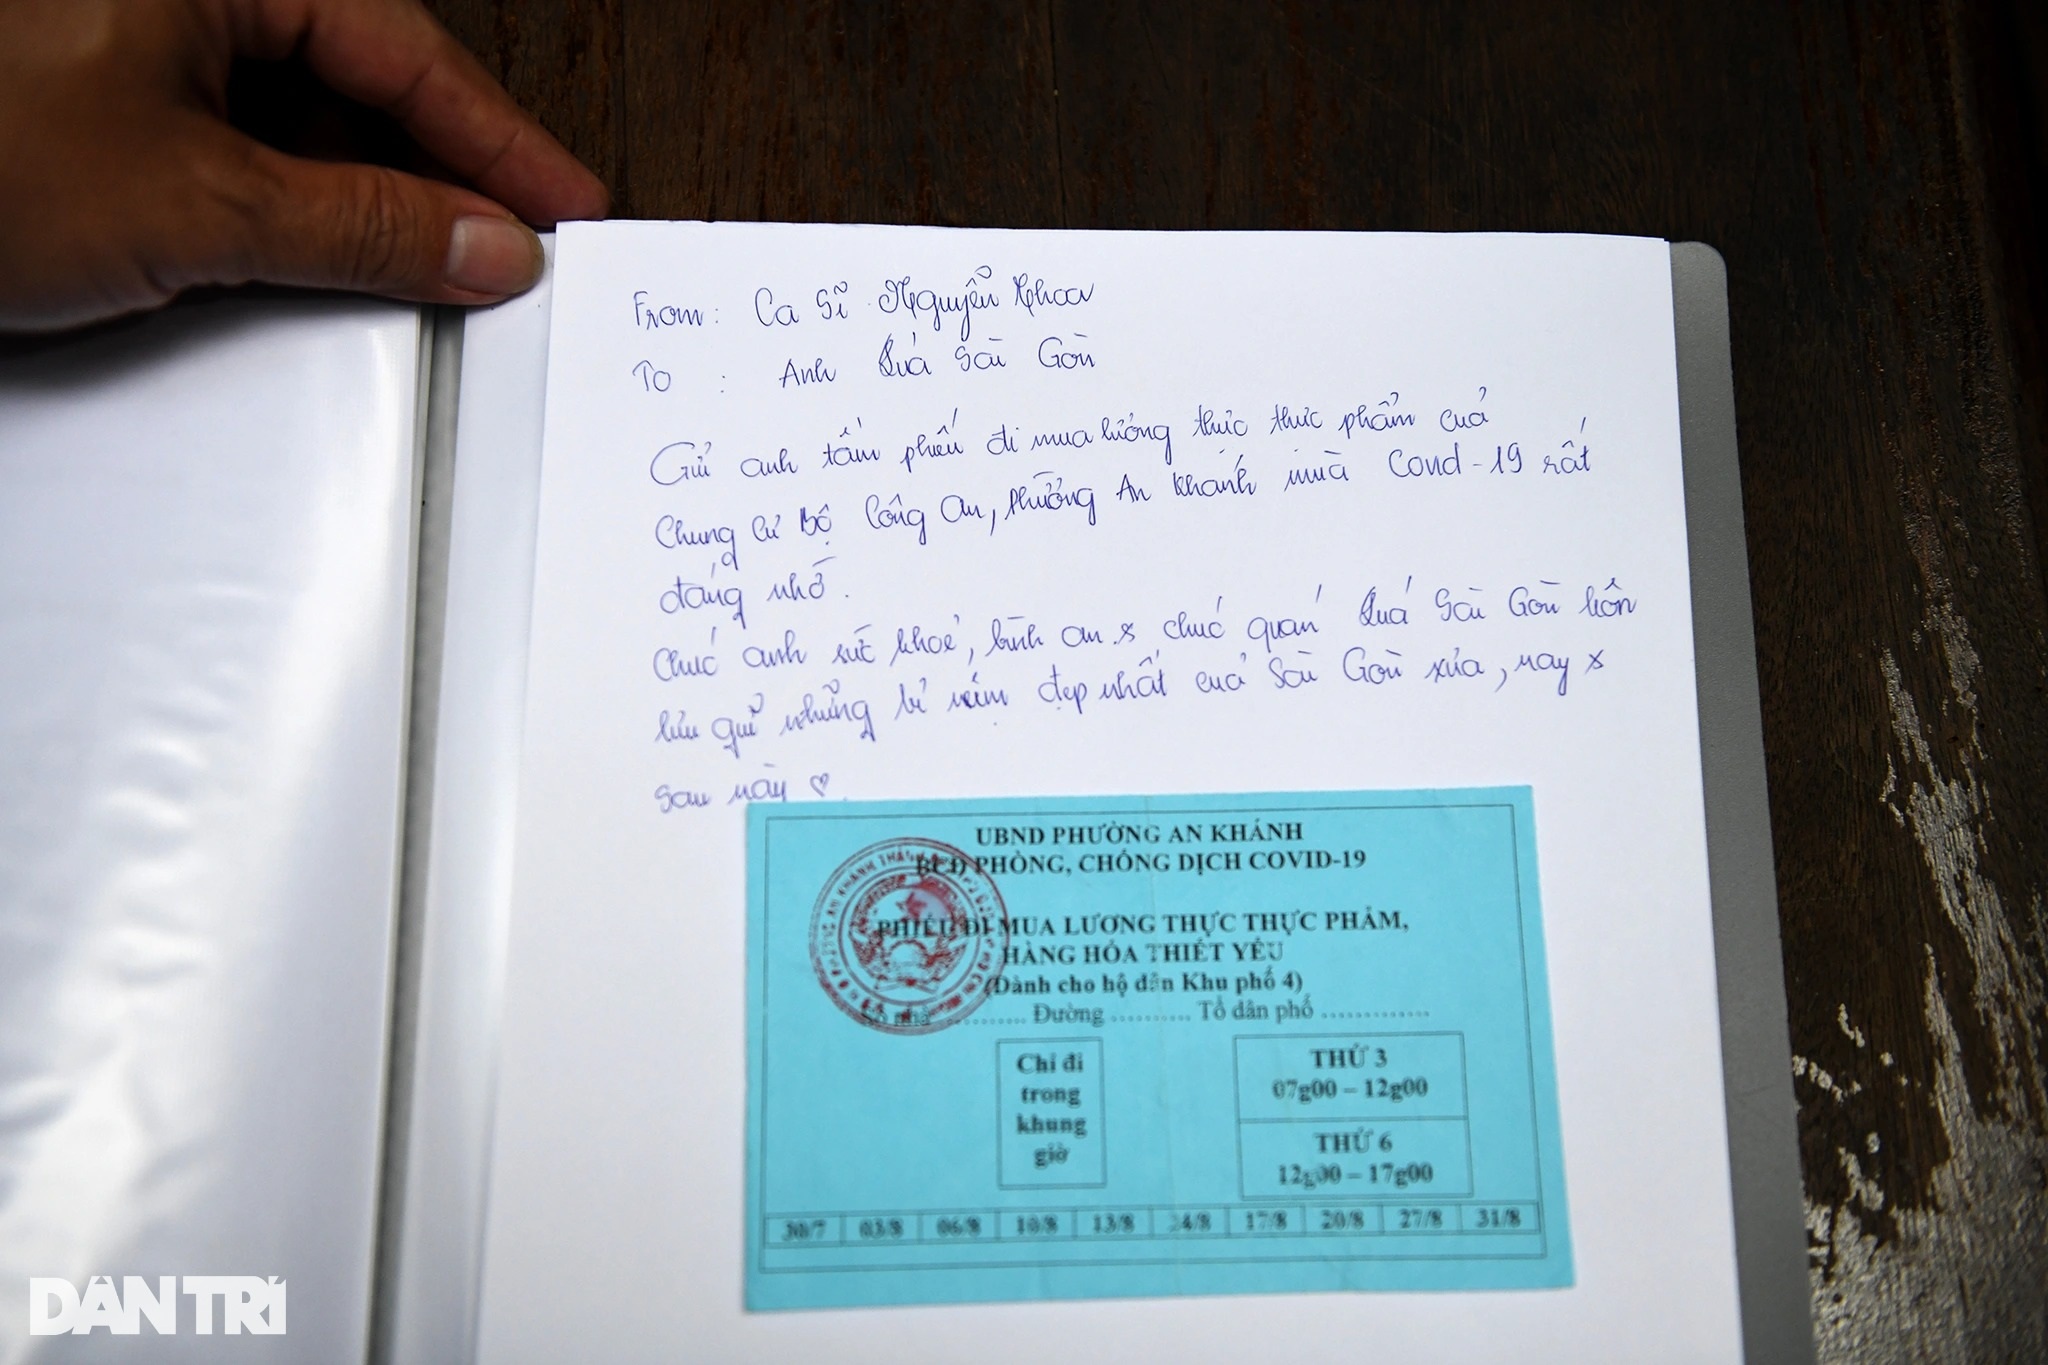 From: Ca Sĩ Nguyễn Khoa
To : Anh Quá Sài Gòn
Gửi anh tấm phiếu đi mua lương thực thực phẩm của
Chung cư Bộ Công An, phường An Khánh mùa Covid-19 rất
đáng nhớ.
Chúc anh sức khoẻ, bình an & chúc quán Quá Sài Gòn luôn
lưu giữ những kỉ niệm đẹp nhất của Sài Gòn xưa, nay &
sau này ♡.
UBND PHƯỜNG AN KHÁNH
BCĐ PHÒNG, CHỐNG DỊCH COVID-19
PHIẾU ĐI MUA LƯƠNG THỰC THỰC PHẨM,
HÀNG HÓA THIẾT YẾU
(Dành cho hộ dân Khu phố 4)
Số nhà ............ Đường .......... Tổ dân phố .............
Chỉ đi
trong
khung
giờ
THỨ 3
07g00 – 12g00
THỨ 6
12g00 – 17g00
30/7 03/8 06/8 10/8 13/8 24/8 17/8 20/8 27/8 31/8
DÂN TRÍ